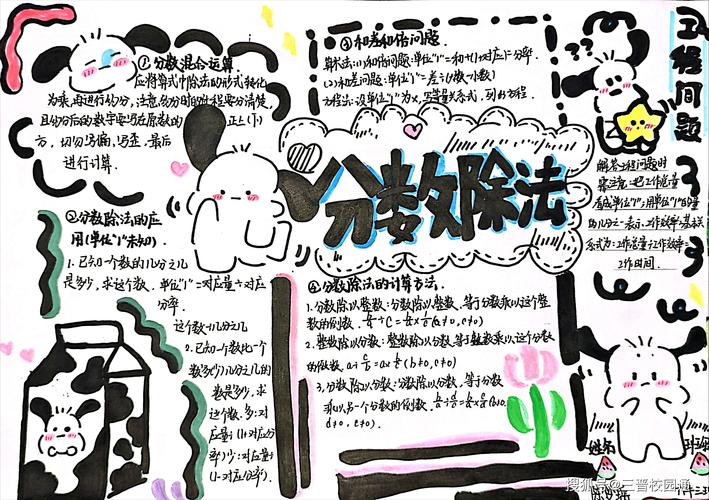 ①分数混合运算.
应将算式中除法的形式转化
为乘,再进行约分,注意约分时的过程要写清楚,
且约分后的数字要写在原数的正上(下)
方,切勿写偏,写歪.最后
进行计算.
③和差和倍问题.
算术法:(1)和倍问题:单位"1"=和÷(1+对应)分率.
(2)和差问题:单位"1"=差÷(大数-小数)
方程法:设单位"1"为x,写等量关系式,列方程.
工程问题
解答工程问题时
需注意:把工作总量
看成单位"1";用单位"1"的
几分之一表示.工作效率.基本关
系式为:工作总量÷工作效率=
工作时间.
分数除法
②分数除法的应
用(单位"1"未知).
1.已知一个数的几分之几
是多少,求这个数.单位"1"=对应量÷对应
分率.
这个数÷几分之几
2.已知一个数比一个
数多少几分之几的
数是多少,求
这个数.多:对
应量÷(1+对应分
率)少:对应量÷
(1-对应分率).
④分数除法的计算方法.
1.分数除以整数:分数除以整数.等于分数乘以这个整
数的倒数.
2.整数除以分数:整数除以分数.等于整数乘以这个分数
的倒数.
3.分数除以分数:分数除以分数.等于分数
乘以另一个分数的倒数.
姓名
班级
搜狐号@三晋校园通